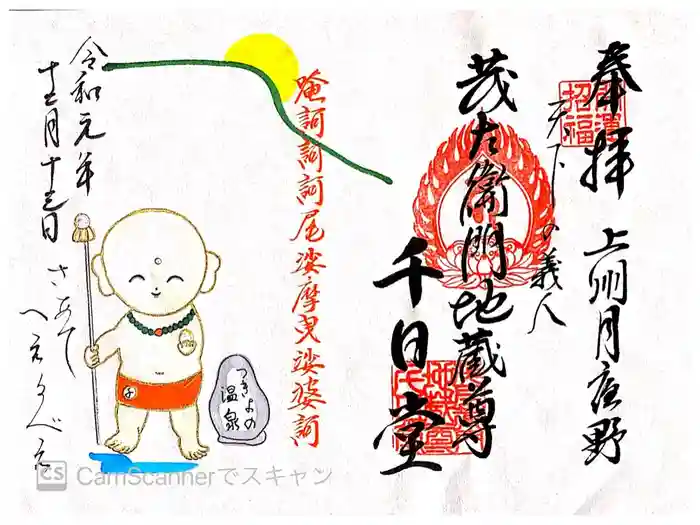 奉拝
上州月夜野
天下の義人
茂左衛門地蔵尊
千日堂
招福
唵訶訶訶尾娑摩曳娑婆訶
つきよの
温泉
令和元年
十二月十三日
さあて
へえるべえ
CS CamScannerでスキャン